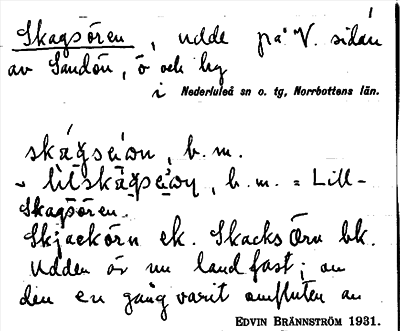 Skagsören, udde på V. sidan
av Sandön, ö och by
i Nederluleå sn o. tg, Norrbottens län.
b. m.
b. m. = Lill-
Skagsören.
Skjackörn ek. Skacks Örn bk.
Udden är nu landfast; an
den en gång varit omfluten av
EDVIN BRÄNNSTRÖM 1931.